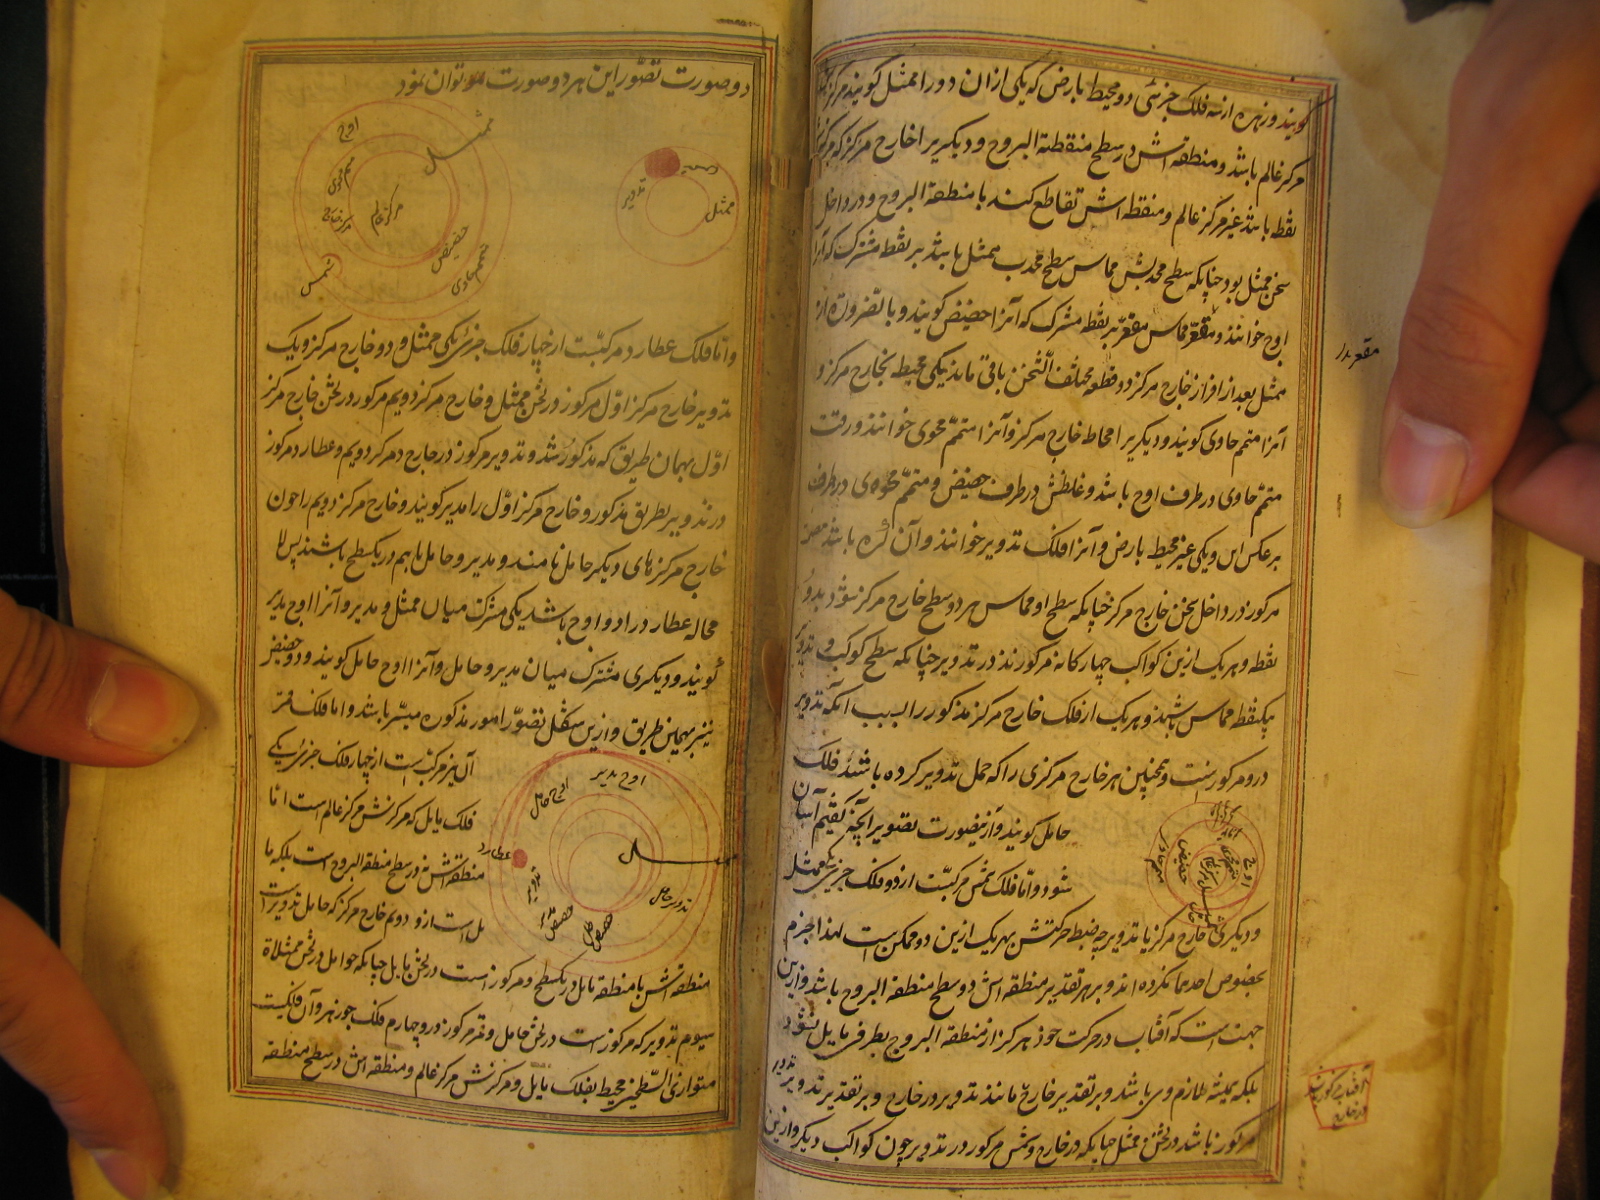 کویند و زهره از سه فلک جزئی دو محیط بارض که یکی از ان دو را ممثل کویند مرکزش
مرکز عالم باشد و منطقه اش در سطح منقطة البروج و دیکریرا خارج مرکز که مرکزش
نقطه باشد غیر مرکز عالم و منقطه اش تقاطع کند با منطقة البروج و در داخل
ثخن ممثل بود چنانکه سطح محدبش مماس سطح محدب ممثل باشد بر نقطه مشترک که آنرا
اوج خوانند و مقعر مماس مقعر بر نقطه مشترک که آنرا حضیض کویند و بالضروره از
مقعر را
ممثل بعد از افراز خارج مرکز دو قطعه مختلف الثخن باقی ماند یکی محیط بخارج مرکز و
آنرا متمم حاوی کویند و دیکریرا محاط خارج مرکز و آنرا متمم محوی خوانند و رقت
متمم حاوی در طرف اوج باشد و غلظش در طرف حضیض و متمم محوی در طرفین
بر عکس این و یکی غیر محیط بارض و آنرا فلک تدویر خوانند و آن کره باشد
مرکوز در داخل ثخن خارج مرکز چنانکه سطح او مماس هر دو سطح خارج مرکز شود بدو
نقطه و هر یک ازین کواکب چهارکانه مرکوزند در تدویر چنانکه سطح کوکب و تدویر
بیکنقطه مماس باشند و هر یک از فلک خارج مرکز مذکور را بسبب آنکه تدویر
درو مرکوزست و همچنین هر خارج مرکزی را که حمل تدویر کرده باشد فلک
حامل کویند و ازینصورت تصویر آنچه کفتیم آسان
شود و اما فلک شمس مرکبست از دو فلک جزئی یکی ممثل
اوج
حضیض
متمم حاوی
و دیکری خارج مرکز یا تدویر چه ضبط حرکتش بهر یک ازین دو ممکن است لهذا جزم
بخصوص احدهما نکرده اند و بر هر تقدیر منطقه اش در سطح منطقة البروج باشد و ازین
جهت است که آفتاب در حرکت خود هرکز از منطقة البروج بطرفی مایل نشود
بلکه همیشه ملازم وی باشد و بر تقدیر خارج مانند تدویر در خارج و بر تقدیر تدویر
تدویر
آفتاب مرکوزست
در خارج
مرکوز باشد در ثخن ممثل چنانکه در خارج و شمس مرکوز در تدویر چون کواکب دیکر و ازین
دو صورت تصور این هر دو صورت توان نمود
ممثل
اوج
متمم محوی
مرکز عالم
مرکز خارج
حضیض
متمم حاوی
شمس
شمس
تدویر
ممثل
و اما فلک عطارد مرکبست از چهار فلک جزئی یکی ممثل و دو خارج مرکز و یک
تدویر خارج مرکز اول مرکوز در ثخن ممثل و خارج مرکز دویم مرکوز در ثخن خارج مرکز
اول بهمان طریق که مذکور شد و تدویر مرکوز در خارج مرکز دویم و عطارد مرکوز
در تدویر بطریق مذکور و خارج مرکز اول را مدیر کویند و خارج مرکز دویم را چون
خارج مرکزهای دیکر حامل نامند و مدیر و حامل باهم در یکسطح باشند پس لا
محاله عطارد را دو اوج باشد یکی مشترک میان ممثل و مدیر و آنرا اوج مدیر
کویند و دیکری مشترک میان مدیر و حامل و آنرا اوج حامل کویند و دو حضیض
نیز بهمین طریق و ازین شکل تصور امور مذکوره میسر باشد و اما فلک قمر
آن نیز مرکبست از چهار فلک جزئی یکی
فلک مایل که مرکزش مرکز عالم است اما
منطقه اش نه در سطح منطقة البروج است بلکه ما
یل است ازو دویم خارج مرکز که حامل تدویر است
اوج مدیر
اوج حامل
عطارد
ممثل
تدویر
تدویر حامل
حضیض مدیر
حضیض حامل
منطقه اش با منطقه مایل در یکسطح و مرکوز است در ثخن مایل چنانکه حوامل در ثخن ممثلاة
سیوم تدویر که مرکوز است در ثخن حامل و قمر مرکوز درو چهارم فلک جوزهر و آن فلکیست
متوازی السطحین محیط بفلک مایل و مرکزش مرکز عالم و منطقه اش در سطح منطقة